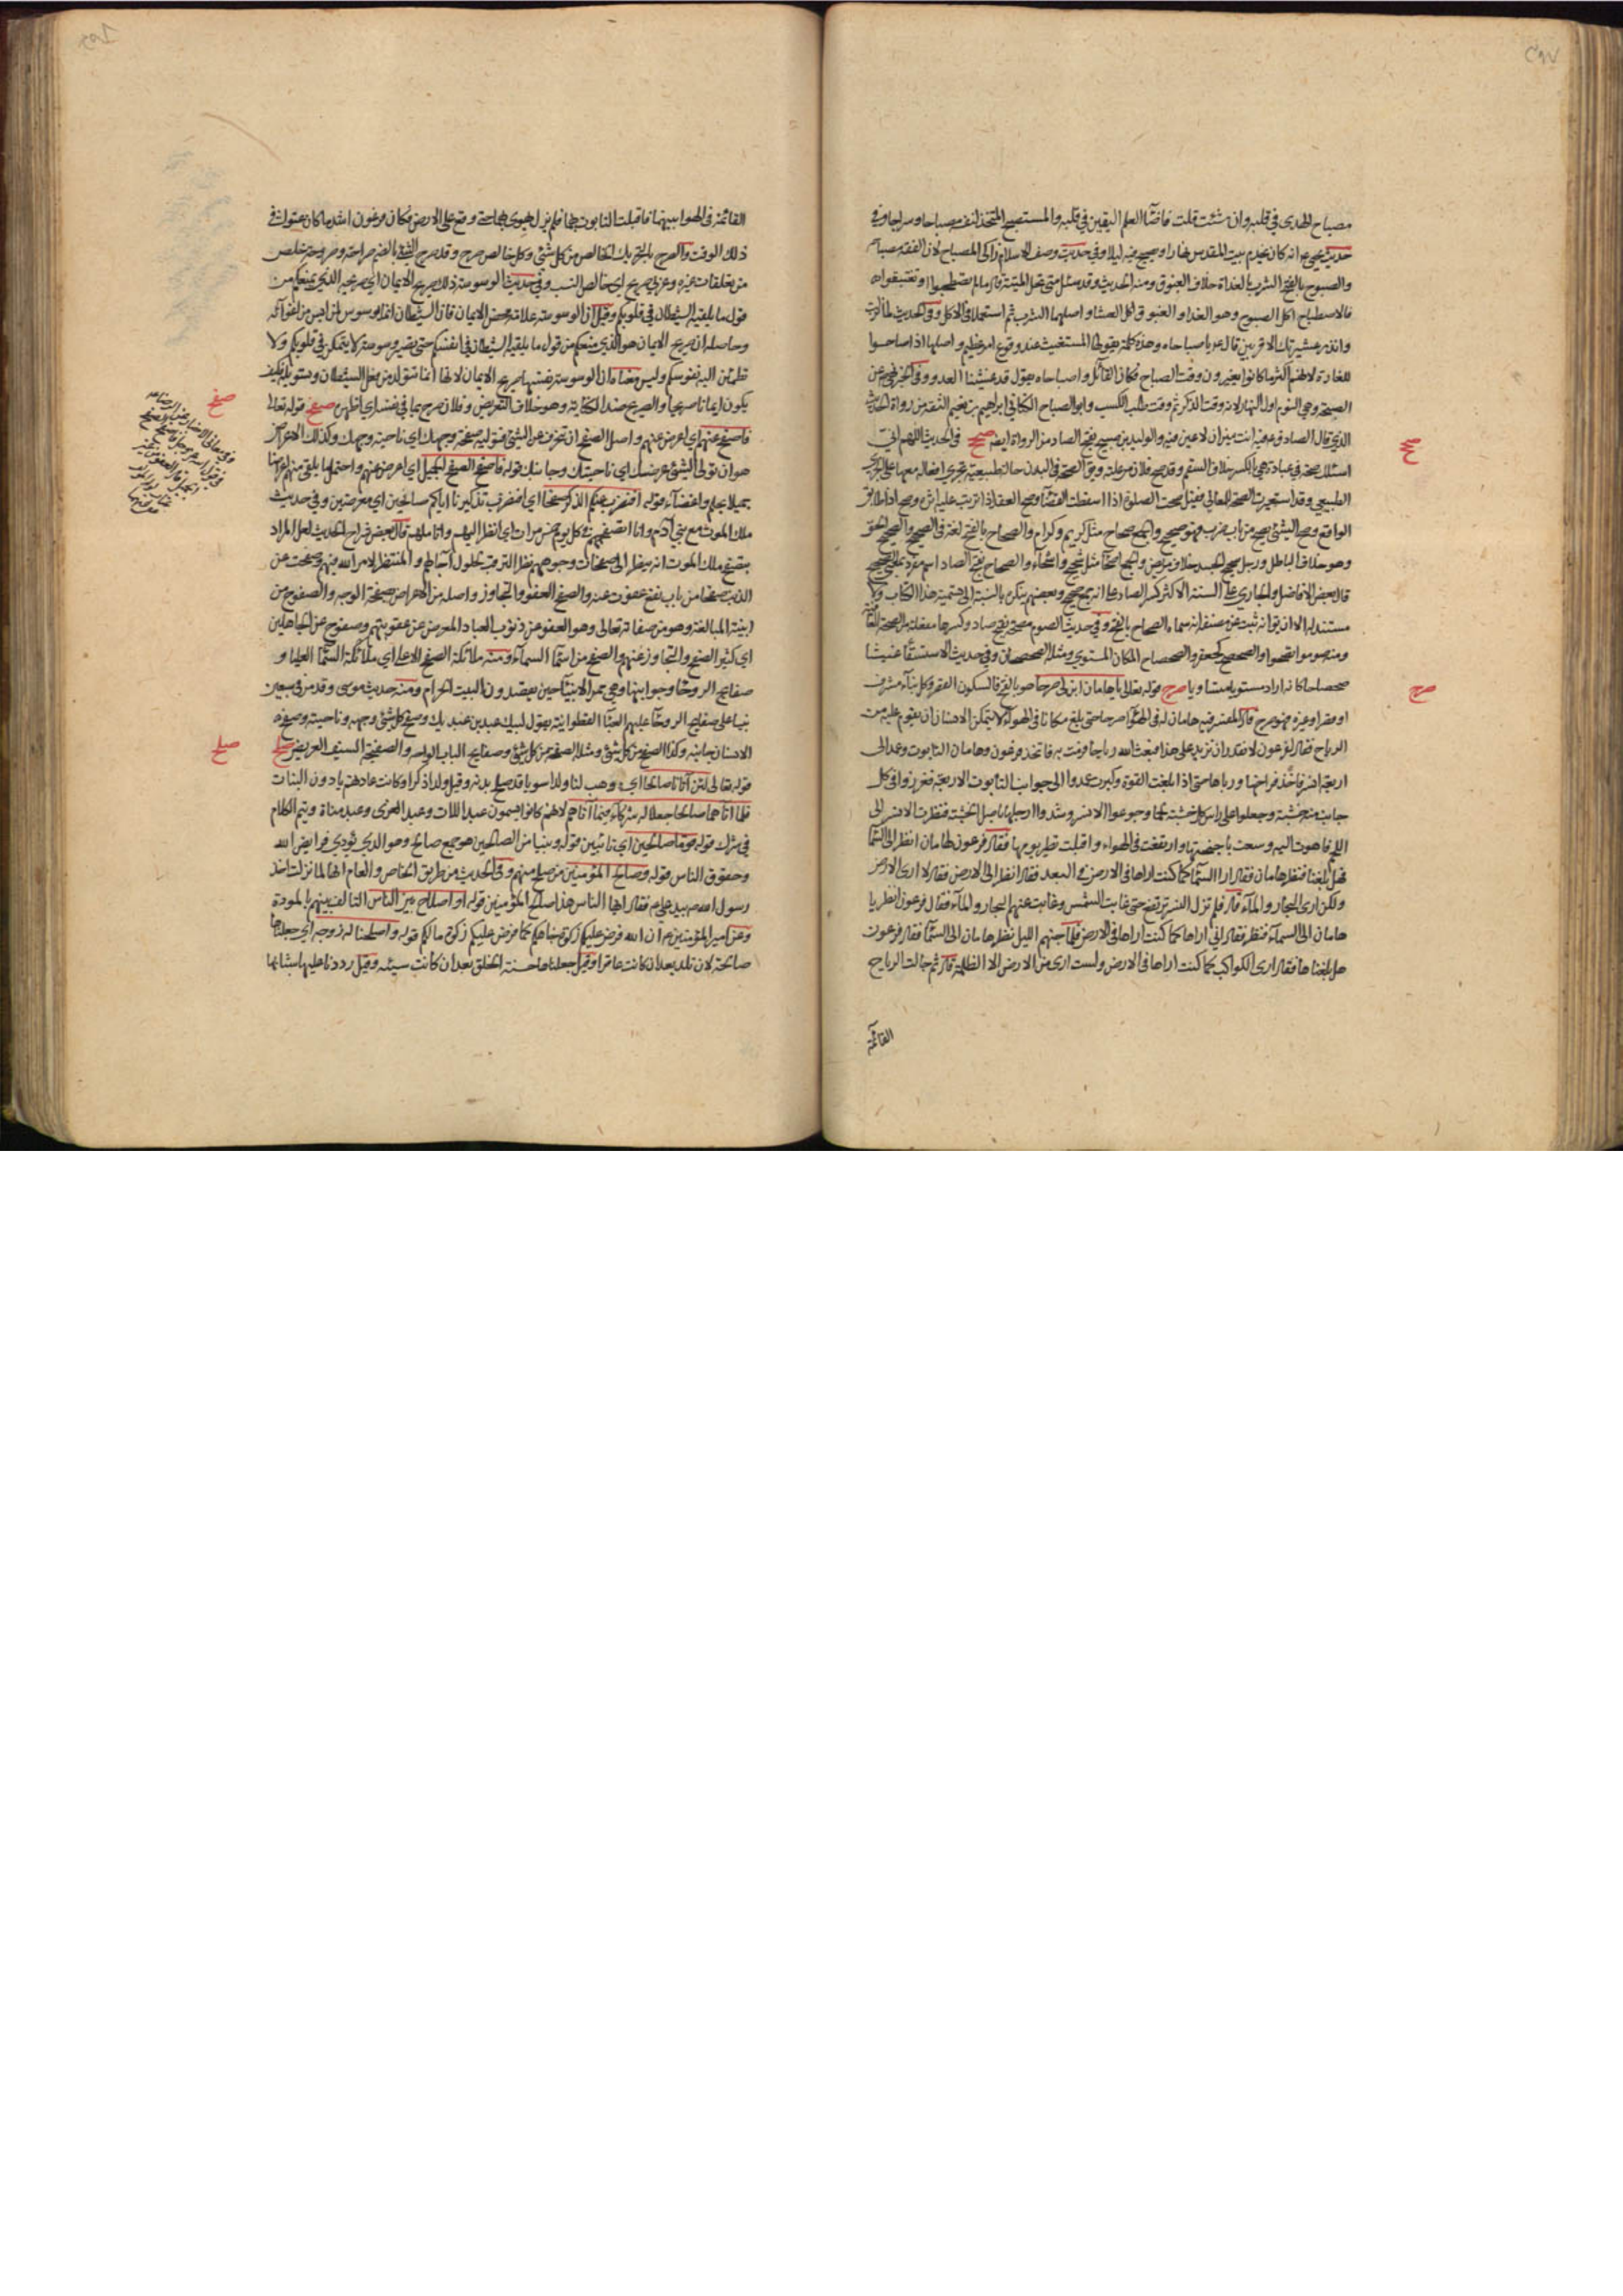 مصباح الهدى في قلبه وان شئت قلت فاضاء العلم اليقين في قلبه والمستصبح المتخذ لنفسه مصباحا وسراجا وفي
حديث يحيى ع انه كان يخدم بيت المقدس نهارا ويصبح فيه ليلا وفي حديث وصف الاسلام زاكي المصباح لان الفقه مصباحه
والصبوح بالفتح الشرب بالغداة خلاف الغبوق ومنه الحديث وقد سئل متى تحل الميتة قال ما لم تصطبحوا او تغتبقوا
فالاصطباح اكل الصبوح وهو الغداء والغبوق اكل العشاء واصلهما الشرب ثم استعملا في الاكل وفي الحديث لما نزلت
وانذر عشيرتك الاقربين قال ص يا صباحاه وهذه كلمة يقولها المستغيث عند وقوع امر عظيم واصلها اذا صاحوا
للغارة لانهم اكثر ما كانوا يغيرون وقت الصباح فكان القائل وا صباحاه يقول قد غشينا العدو وفي الخبر نهى عن
الصبحة وهي النوم اول النهار لانه وقت الذكر ثم وقت طلب الكسب وابو الصباح الكناني ابراهيم بن نعيم الثقة من رواة الحديث
الذي قال الصادق ع فيه انت ميزان لا عين فيه والوليد بن صبيح بفتح الصاد من الرواة ايضا صحح في الحديث اللهم اني
اسئلك صحة في عبادة هي بالكسر خلاف السقم وقد صح فلان من علته وق الصحة في البدن حالة طبيعية تجري افعاله معها على المجرى
الطبيعي وقد استعيرت الصحة للمعاني فقيل صحت الصلوة اذا اسقطت القضاء وصح العقد اذا ترتب عليه اثره وصح اذا طابق
الواقع وصح الشئ يصح من باب ضرب فهو صحيح والجمع صحاح مثل كريم وكرام والصحاح بالفتح لغة في الصحيح والصحيح الحق
وهو خلاف الباطل ورجل صحيح الجسد خلاف مريض والجمع اصحاء مثل شحيح واشحاء والصحاح بفتح الصاد اسم مفرد بمعنى الصحيح
قال بعض الافاضل والجاري على السنة الاكثر كسر الصاد على انه جمع صحيح وبعضهم ينكره بالنسبة الى تسمية هذا الكتاب ولا
مستند له الا ان يق انه ثبت عن مصنفه انه سماه الصحاح بالفتح وفي حديث الصوم مصحة بفتح صاد وكسرها مفعلة من الصحة العافية
ومنه صوموا تصحوا والصحصح كجعفر والصحصاح المكان المستوي ومثله الصحصحان وفي حديث الاستسقاء غيثا
صحصاحا كانه اراد مستويا متساويا صرح قوله تعالى يا هامان ابن لي صرحا هو بالفتح فالسكون القصر وكل بناء مشرف
او قصر او غيره فهو صرح قال المفسر فبنى هامان له في الهواء صرحا حتى بلغ مكانا في الهواء لا يتمكن الانسان ان يقوم عليه من
الرياح فقال لفرعون لا نقدر ان نزيد على هذا فبعث الله رياحا فرمت به فاتخذ فرعون وهامان التابوت وعمدا الى
اربعة انسر فاخذ فراخها ورباها حتى اذا بلغت القوة وكبرت عمدوا الى جوانب التابوت الاربعة فغرزوا في كل
جانب منه خشبة وجعلوا على راس كل خشبة لحما وجوعوا الانسر وشدوا ارجلها باصل الخشبة فنظرت الانسر الى
اللحم فاهوت اليه وسعت باجنحتها وارتفعت في الهواء واقبلت تطير يومها فقال فرعون لهامان انظر الى السماء
هل بلغنا فنظر هامان فقال ارى السماء كما كنت اراها في الارض في البعد فقال انظر الى الارض فقال لا ارى الارض
ولكن ارى البحار والماء قال فلم تزل النسر ترتفع حتى غابت الشمس وغابت عنهم البحار والماء فقال فرعون انظر يا
هامان الى السماء فنظر فقال اني اراها كما كنت اراها في الارض فلما جنهم الليل نظر هامان الى السماء فقال فرعون
هل بلغناها فقال ارى الكواكب كما كنت اراها في الارض ولست ارى من الارض الا الظلمة قال ثم حالت الرياح
القائمة
صحح
صرح
القائمة في الهواء بينهما فاقبلت التابوت بهما فلم يزل يهوي بهما حتى وقع على الارض فكان فرعون اشد ما كان عتوا في
ذلك الوقت والصرح بالتحريك الخالص من كل شئ وكل خالص صرح وقد صرح الشئ بالضم صراحة وصروحة خلص
من تعلقات غيره وعربي صريح اي خالص النسب وفي حديث الوسوسة ذلك صريح الايمان اي صريحه الذي يمنعكم من
قول ما يلقيه الشيطان في قلوبكم وقيل ان الوسوسة علامة محض الايمان فان الشيطان انما يوسوس لمن ايس من اغوائه
وحاصله ان صريح الايمان هو الذي منعكم من قول ما يلقيه الشيطان في انفسكم حتى يصير وسوسة لا يتمكن في قلوبكم ولا
تطمئن اليه نفوسكم وليس معناه ان الوسوسة نفسها صريح الايمان لانها انما تتولد من فعل الشيطان وتسويله فكيف
يكون ايمانا صريحا والصريح ضد الكناية وهو خلاف التعريض وفلان صرح بما في نفسه اي اظهره صفح قوله تعالى
فاصفح عنهم اي اعرض عنهم واصل الصفح ان تنحرف عن الشئ فتوليه صفحة وجهك اي ناحية وجهك وكذلك الاعراض
هو ان تولي الشئ عرضك اي ناحيتك وجانبك قوله فاصفح الصفح الجميل اي اعرض عنهم واحتمل ما يلقى منهم اعراضا
جميلا بحلم واغضاء قوله افنضرب عنكم الذكر صفحا اي افنضرب تذكيرنا اياكم صافحين اي معرضين وفي حديث
ملك الموت مع بني آدم وانا اتصفحهم في كل يوم خمس مرات اي انظر اليهم واتاملهم قال بعض شراح الحديث لعل المراد
بتصفح ملك الموت انه ينظر الى صفحات وجوههم نظر الترقب لحلول آجالهم والمنتظر لامر الله فيهم وصفحت عن
الذنب صفحا من باب نفع عفوت عنه والصفح العفو والتجاوز واصله من الاعراض بصفحة الوجه والصفوح من
ابنية المبالغة وهو من صفاته تعالى وهو العفو عن ذنوب العباد المعرض عن عقوبتهم وصفوح عن الجاهلين
اي كثير الصفح والتجاوز عنهم والصفح من اسماء السماء ومنه ملائكة الصفح الاعلى اي ملائكة السماء العليا و
صفايح الروحاء جوانبها وهي ممر الانبياء حين يقصدون البيت الحرام ومنه حديث موسى وقد مر في سبعين
نبيا على صفايح الروحاء عليهم العباء القطوانية يقول لبيك عبدك بن عبديك وصفح كل شئ وجهه وناحيته وصفح
الانسان جانبه وكذا الصفح من كل شئ ومثله الصفحة من كل شئ وصفايح الباب الواحه والصفيحة السيف العريض صلح
قوله تعالى لئن آتيتنا صالحا اي وهب لنا ولدا سويا قد صلح بدنه وقيل ولدا ذكرا وكانت عادتهم يأدون البنات
فلما آتاهما صالحا جعلا له شركاء فيما آتاهما لانهم كانوا يسمون عبد اللات وعبد العزى وعبد مناة ويتم الكلام
في شرك قوله قوما صالحين اي تائبين قوله ونبيا من الصالحين هو جمع صالح وهو الذي يؤدي فرايض الله
وحقوق الناس قوله وصالح المؤمنين من صلح منهم وفي الحديث من طريق الخاص والعام انها لما نزلت اخذ
رسول الله ص بيد علي ع فقال ايها الناس هذا صالح المؤمنين قوله او اصلاح بين الناس التاليف بينهم بالمودة
وعن امير المؤمنين ع ان الله فرض عليكم زكوة جاهكم كما فرض عليكم زكوة مالكم قوله واصلحنا له زوجه اي جعلناها
صالحة لان تلد بعد ان كانت عاقرا وقيل جعلناها حسنة الخلق بعد ان كانت سيئه وقيل رددنا عليها شبابها
صفح
صلح